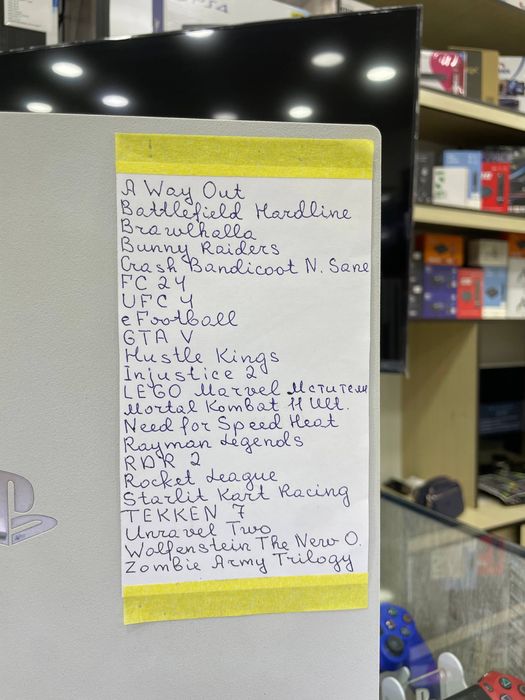 A Way Out
Battlefield Hardline
Brawlhalla
Bunny Raiders
Crash Bandicoot N. Sane
FC 24
UFC 4
eFootball
GTA V
Hustle Kings
Injustice 2
LEGO Marvel Мстители
Mortal Kombat 11 Ult.
Need for Speed Heat
Rayman Legends
RDR 2
Rocket League
Starlit Kart Racing
TEKKEN 7
Unravel Two
Wolfenstein The New O.
Zombie Army Trilogy